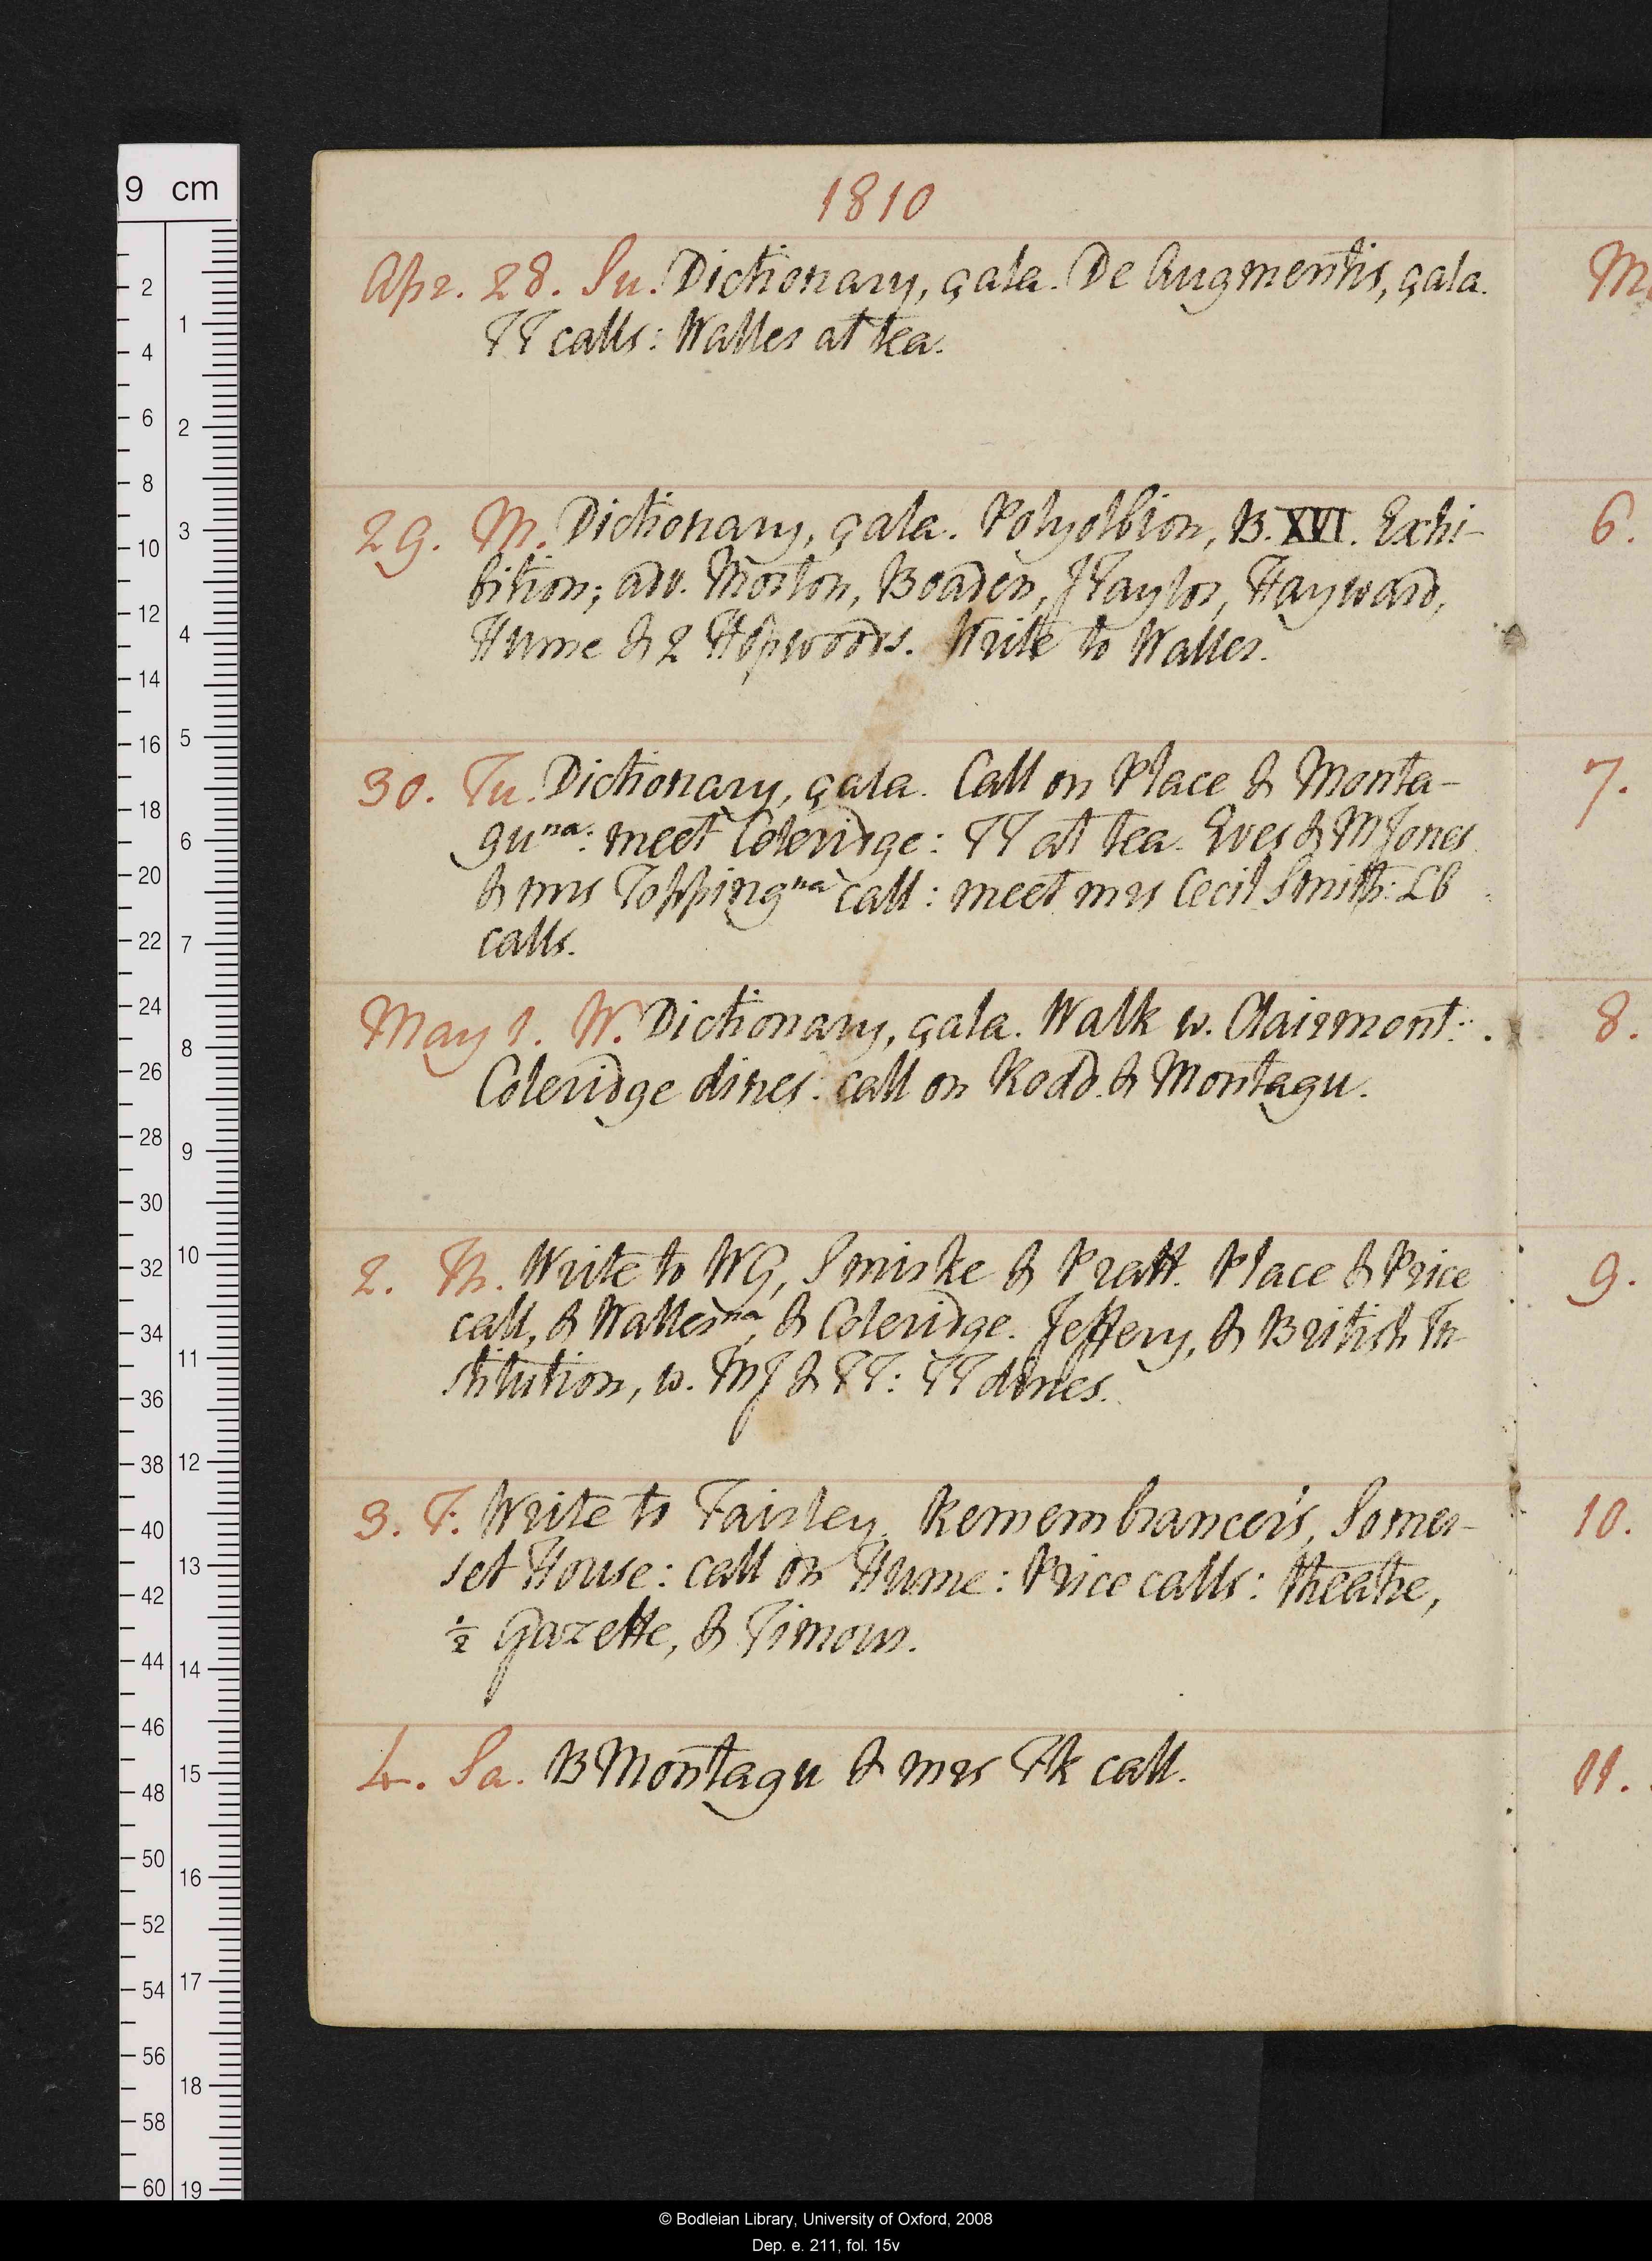 1810
Apr. 28. Su. Dictionary, çala. De Augmentis, çala.
TT calls: Walles at tea.
29. M. Dictionary, çala. Polyolbion, B. XVI. Exhi-
bition; adv. Morton, Boaden, JTaylor, Hayward,
Hume & 2 Hopwoods. Write to Walles.
30. Tu. Dictionary, çala. Call on Place & Monta-
gu na: meet Coleridge: TT at tea. Eves & MJones
& mrs Topping na call: meet mrs Cecil Smith: LB
calls.
May 1. W. Dictionary, çala. Walk w. Clairmont:
Coleridge dines: call on Rodd & Montagu.
2. Th. Write to WG, Smirke & Pratt. Place & Price
call, & Walles na, & Coleridge. Jeffery, & British In
stitution, w. MJ & TT: TT dines.
3. F. Write to Fairley. Remembrancer's, Somer-
set House: call on Hume: Price calls: theatre,
½ Gazette, & Timour.
4. Sa. B Montagu & mrs Fk call.
M
6.
7.
8.
9.
10.
11.
9 cm
2
4
6
8
10
12
14
16
18
20
22
24
26
28
30
32
34
36
38
40
42
44
46
48
50
52
54
56
58
60
1
2
3
4
5
6
7
8
9
10
11
12
13
14
15
16
17
18
19
© Bodleian Library, University of Oxford, 2008
Dep. e. 211, fol. 15v